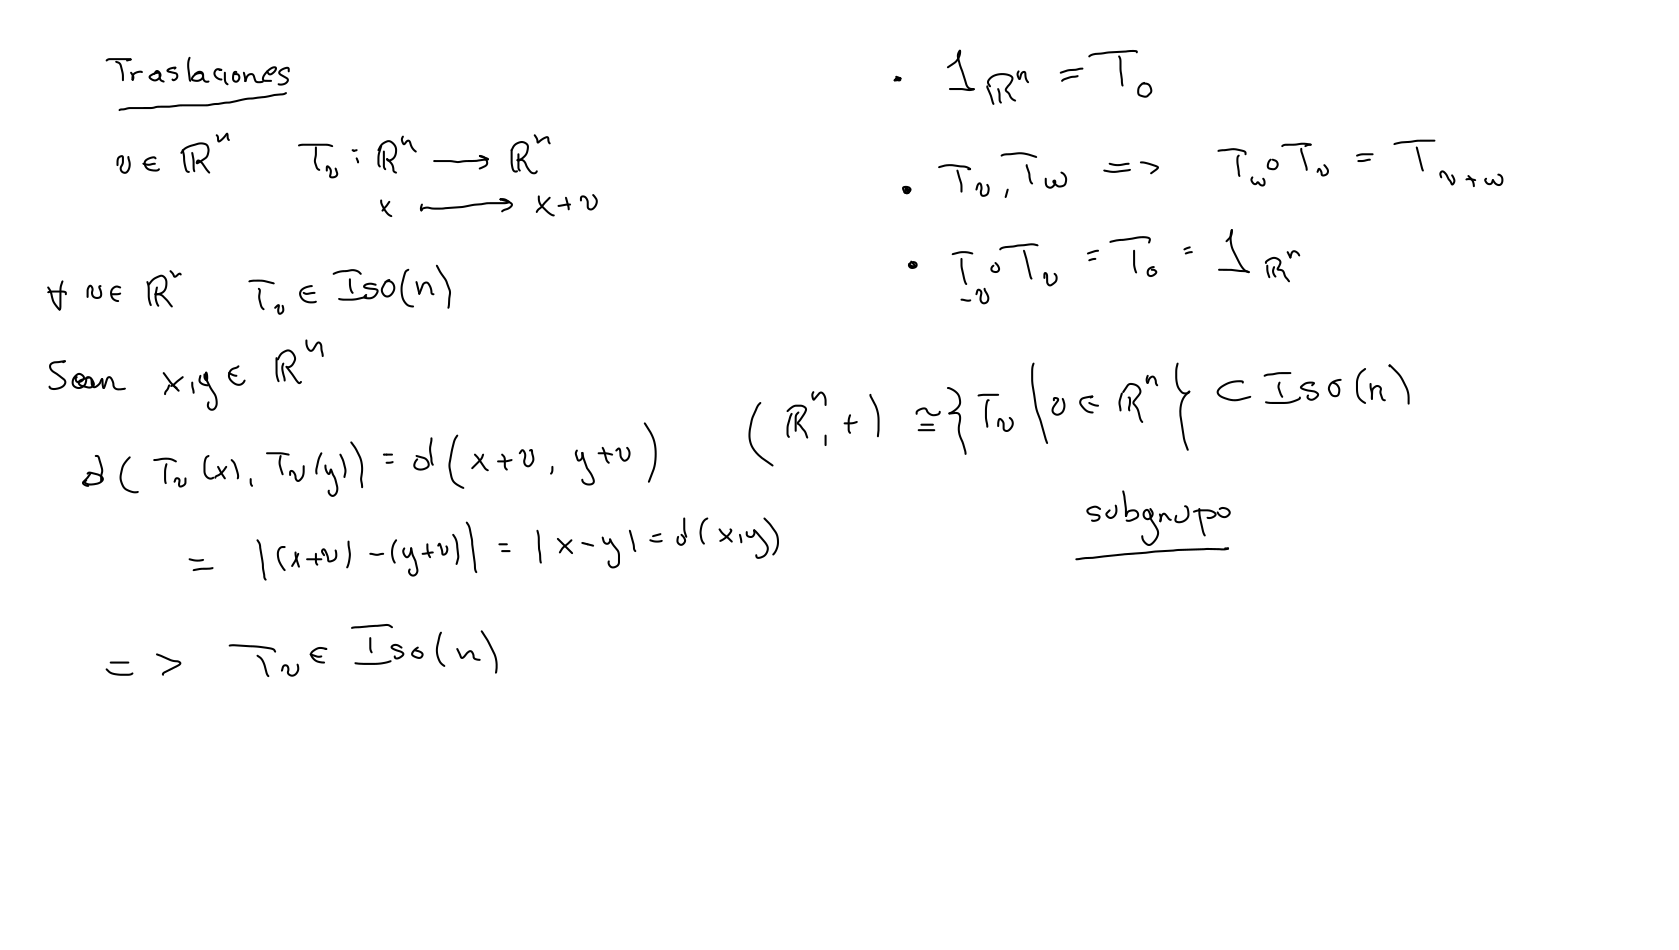 Traslaciones
v ∈ ℝⁿ   T_v : ℝⁿ ⟶ ℝⁿ
x ⟼ x+v
∀ v ∈ ℝⁿ   T_v ∈ Iso(n)
Sean x,y ∈ ℝⁿ
d( T_v(x), T_v(y)) = d( x+v, y+v )
= |(x+v) -(y+v)| = |x-y| = d(x,y)
=> T_v ∈ Iso(n)
• 1_ℝⁿ = T_0
• T_v, T_w => T_w ∘ T_v = T_{v+w}
• T_{-v} ∘ T_v = T_0 = 1_ℝⁿ
(ℝⁿ, +) ≅ { T_v | v ∈ ℝⁿ } ⊂ Iso(n)
subgrupo